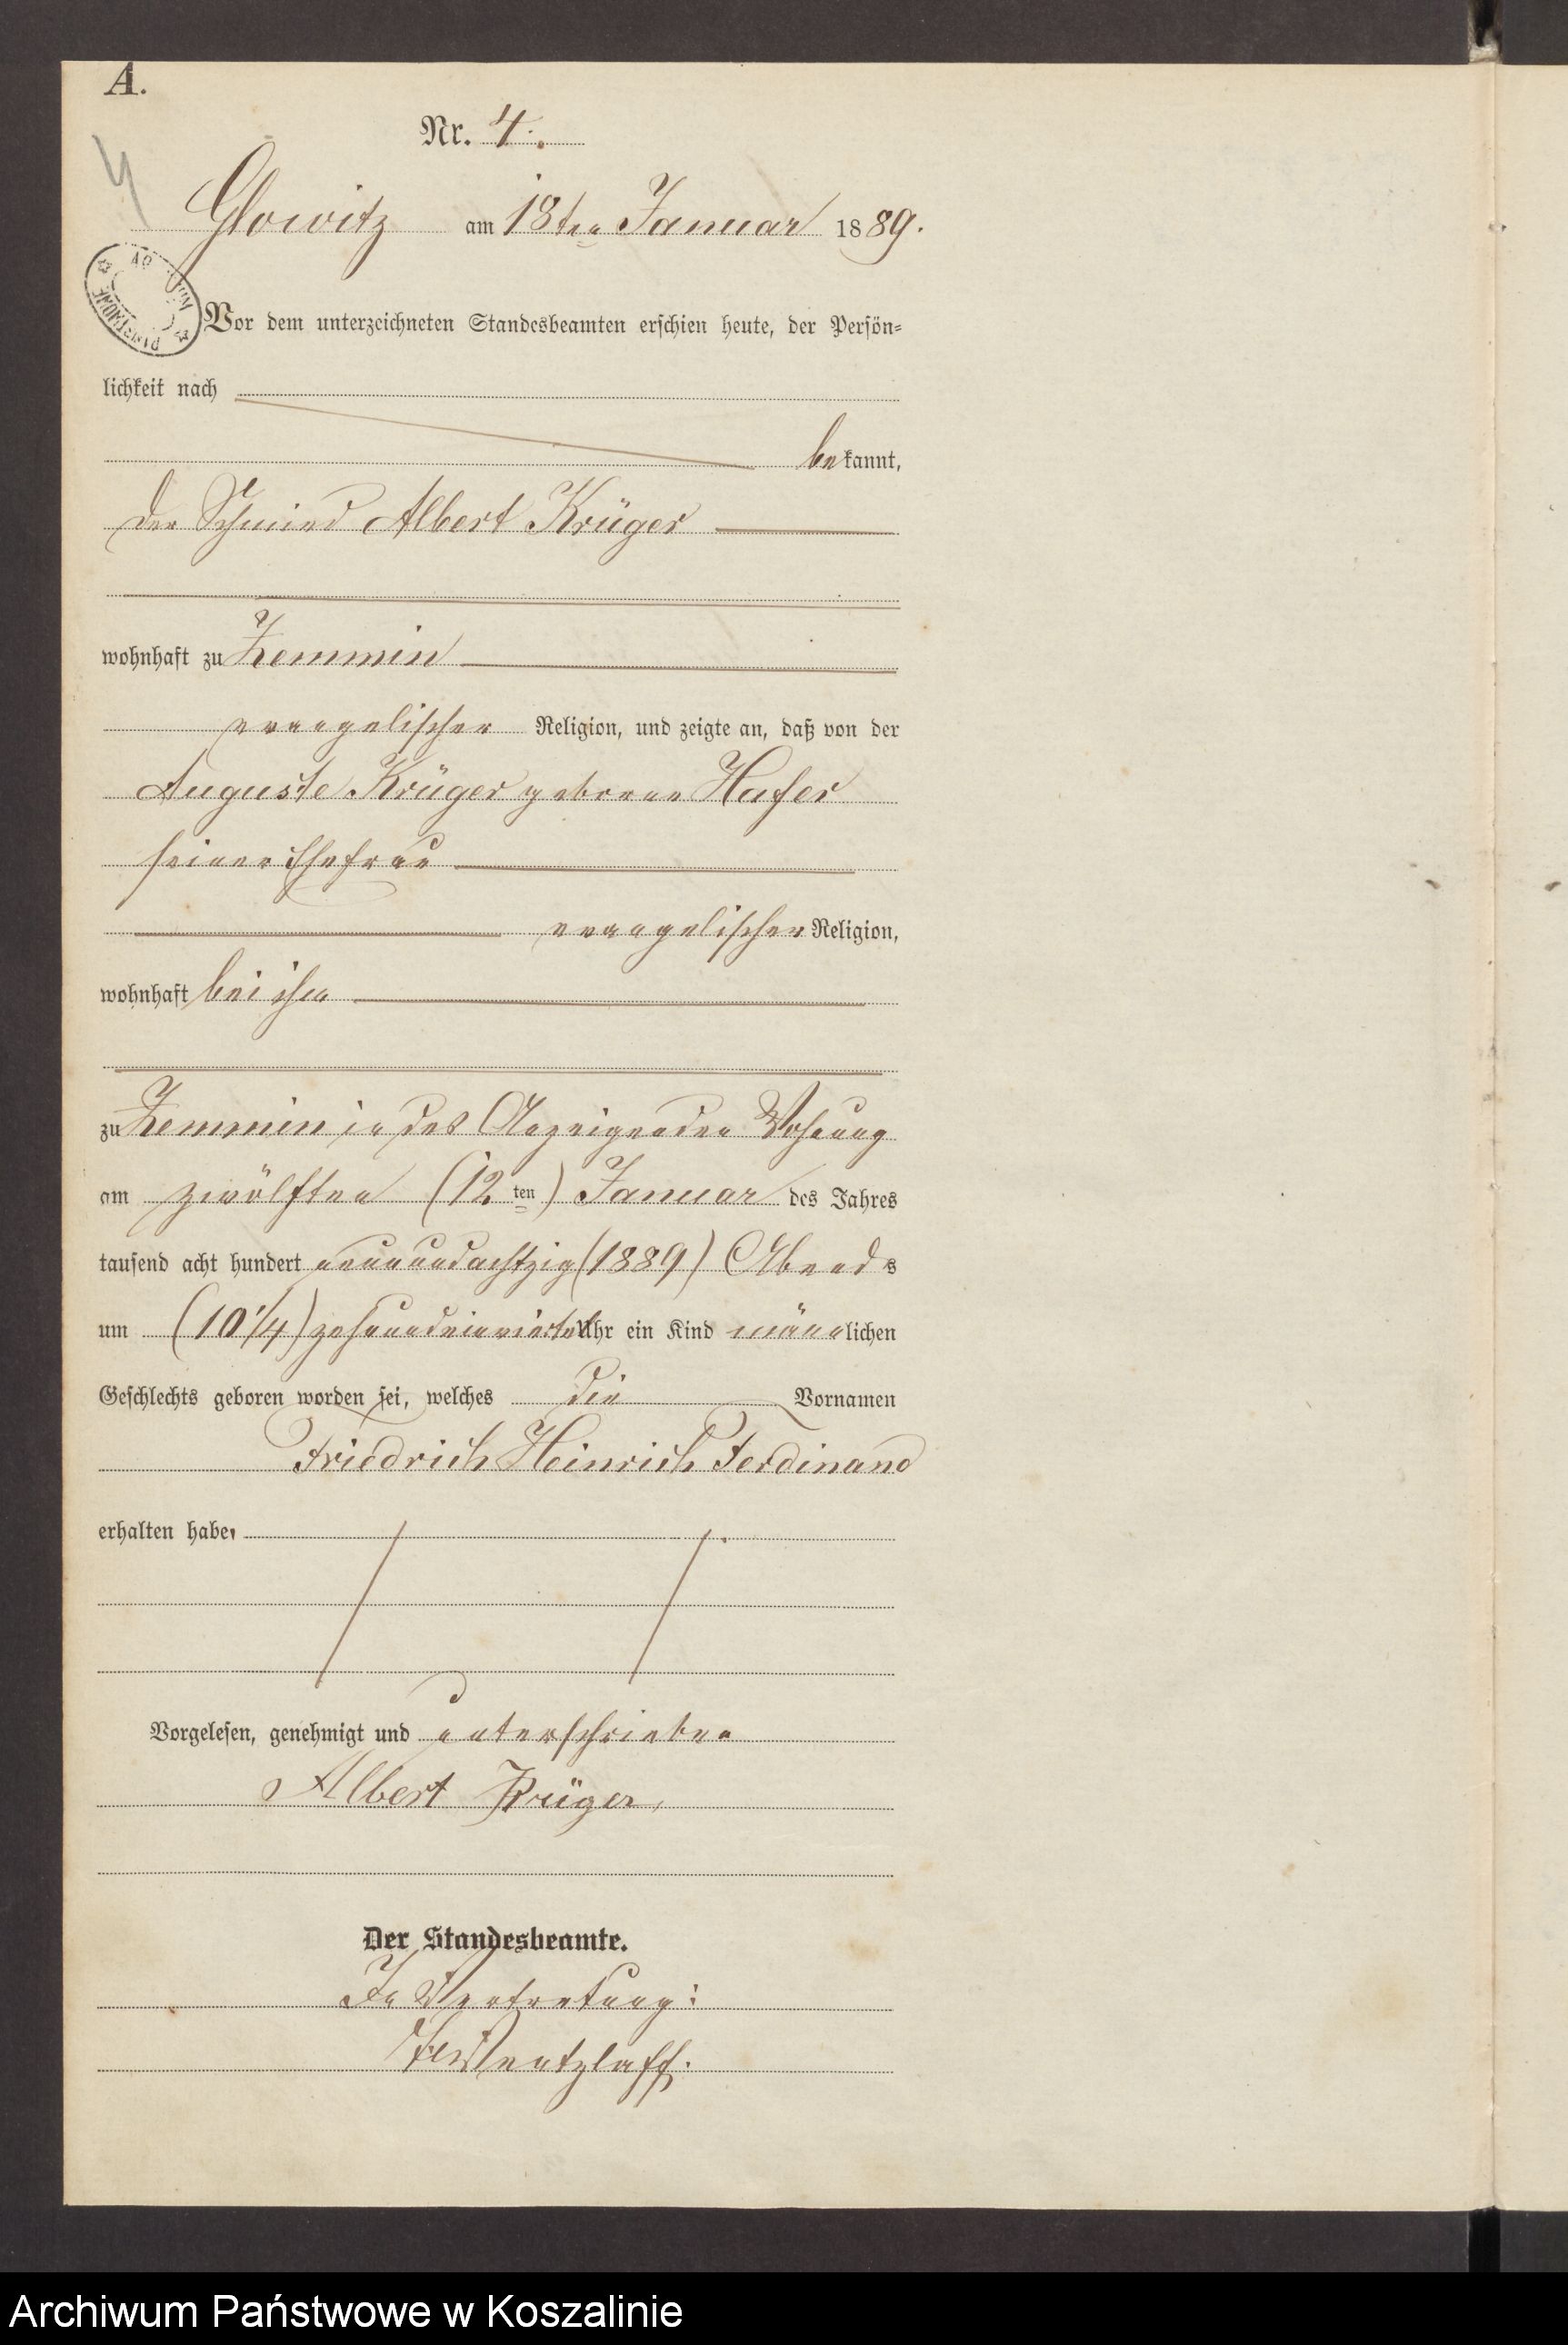 A.
Nr. 4.
4
Glowitz am 18ten Januar 1889.
Vor dem unterzeichneten Standesbeamten erschien heute, der Persön=
lichkeit nach
bekannt,
der Schmied Albert Krüger
wohnhaft zu Zemmin
evangelischer Religion, und zeigte an, daß von der
Auguste Krüger geborne Hafer
seiner Ehefrau
evangelischer Religion,
wohnhaft bei ihm
zu Zemmin in des Anzeigenden Wohnung
am zwölften (12ten) Januar des Jahres
tausend acht hundert neunundachtzig (1889) Abends
um (10 1/4) zehnundeinviertel Uhr ein Kind männlichen
Geschlechts geboren worden sei, welches die Vornamen
Friedrich Heinrich Ferdinand
erhalten habe.
Vorgelesen, genehmigt und unterschrieben
Albert Krüger
Der Standesbeamte.
In Vertretung:
Wentzlaff.
Archiwum Państwowe w Koszalinie